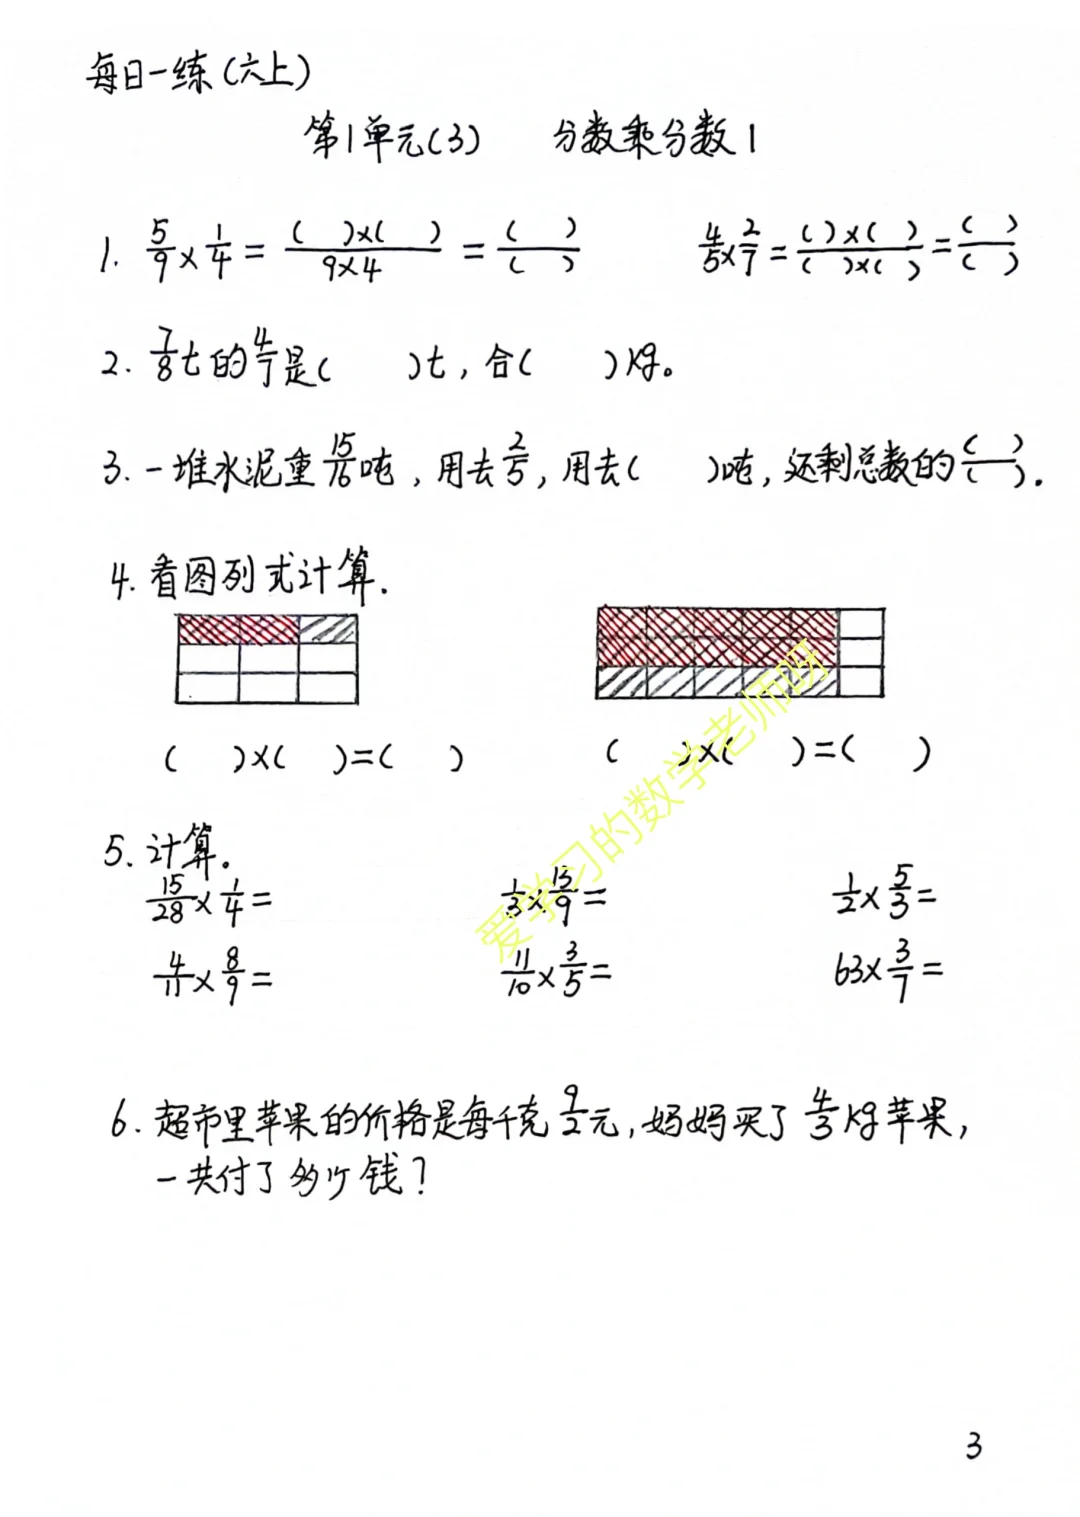 每日一练(六上)
第1单元(3) 分数乘分数1
1. 5/9 × 1/4 = ( )×( )/9×4 = ( )/( ) 4/5 × 2/7 = ( )×( )/( )×( ) = ( )/( )
2. 7/8 t的4/7是( )t,合( )kg。
3. 一堆水泥重15/16吨,用去2/5,用去( )吨,还剩总数的( )/( ).
4. 看图列式计算.
( )×( )=( ) ( )×( )=( )
5. 计算。
15/28 × 1/4 = 1/3 × 13/9 = 1/2 × 5/3 =
4/11 × 8/9 = 11/10 × 3/5 = 63 × 3/7 =
6. 超市里苹果的价格是每千克9/2元,妈妈买了4/3kg苹果,
一共付了多少钱?
爱学习的数学老师呀
3